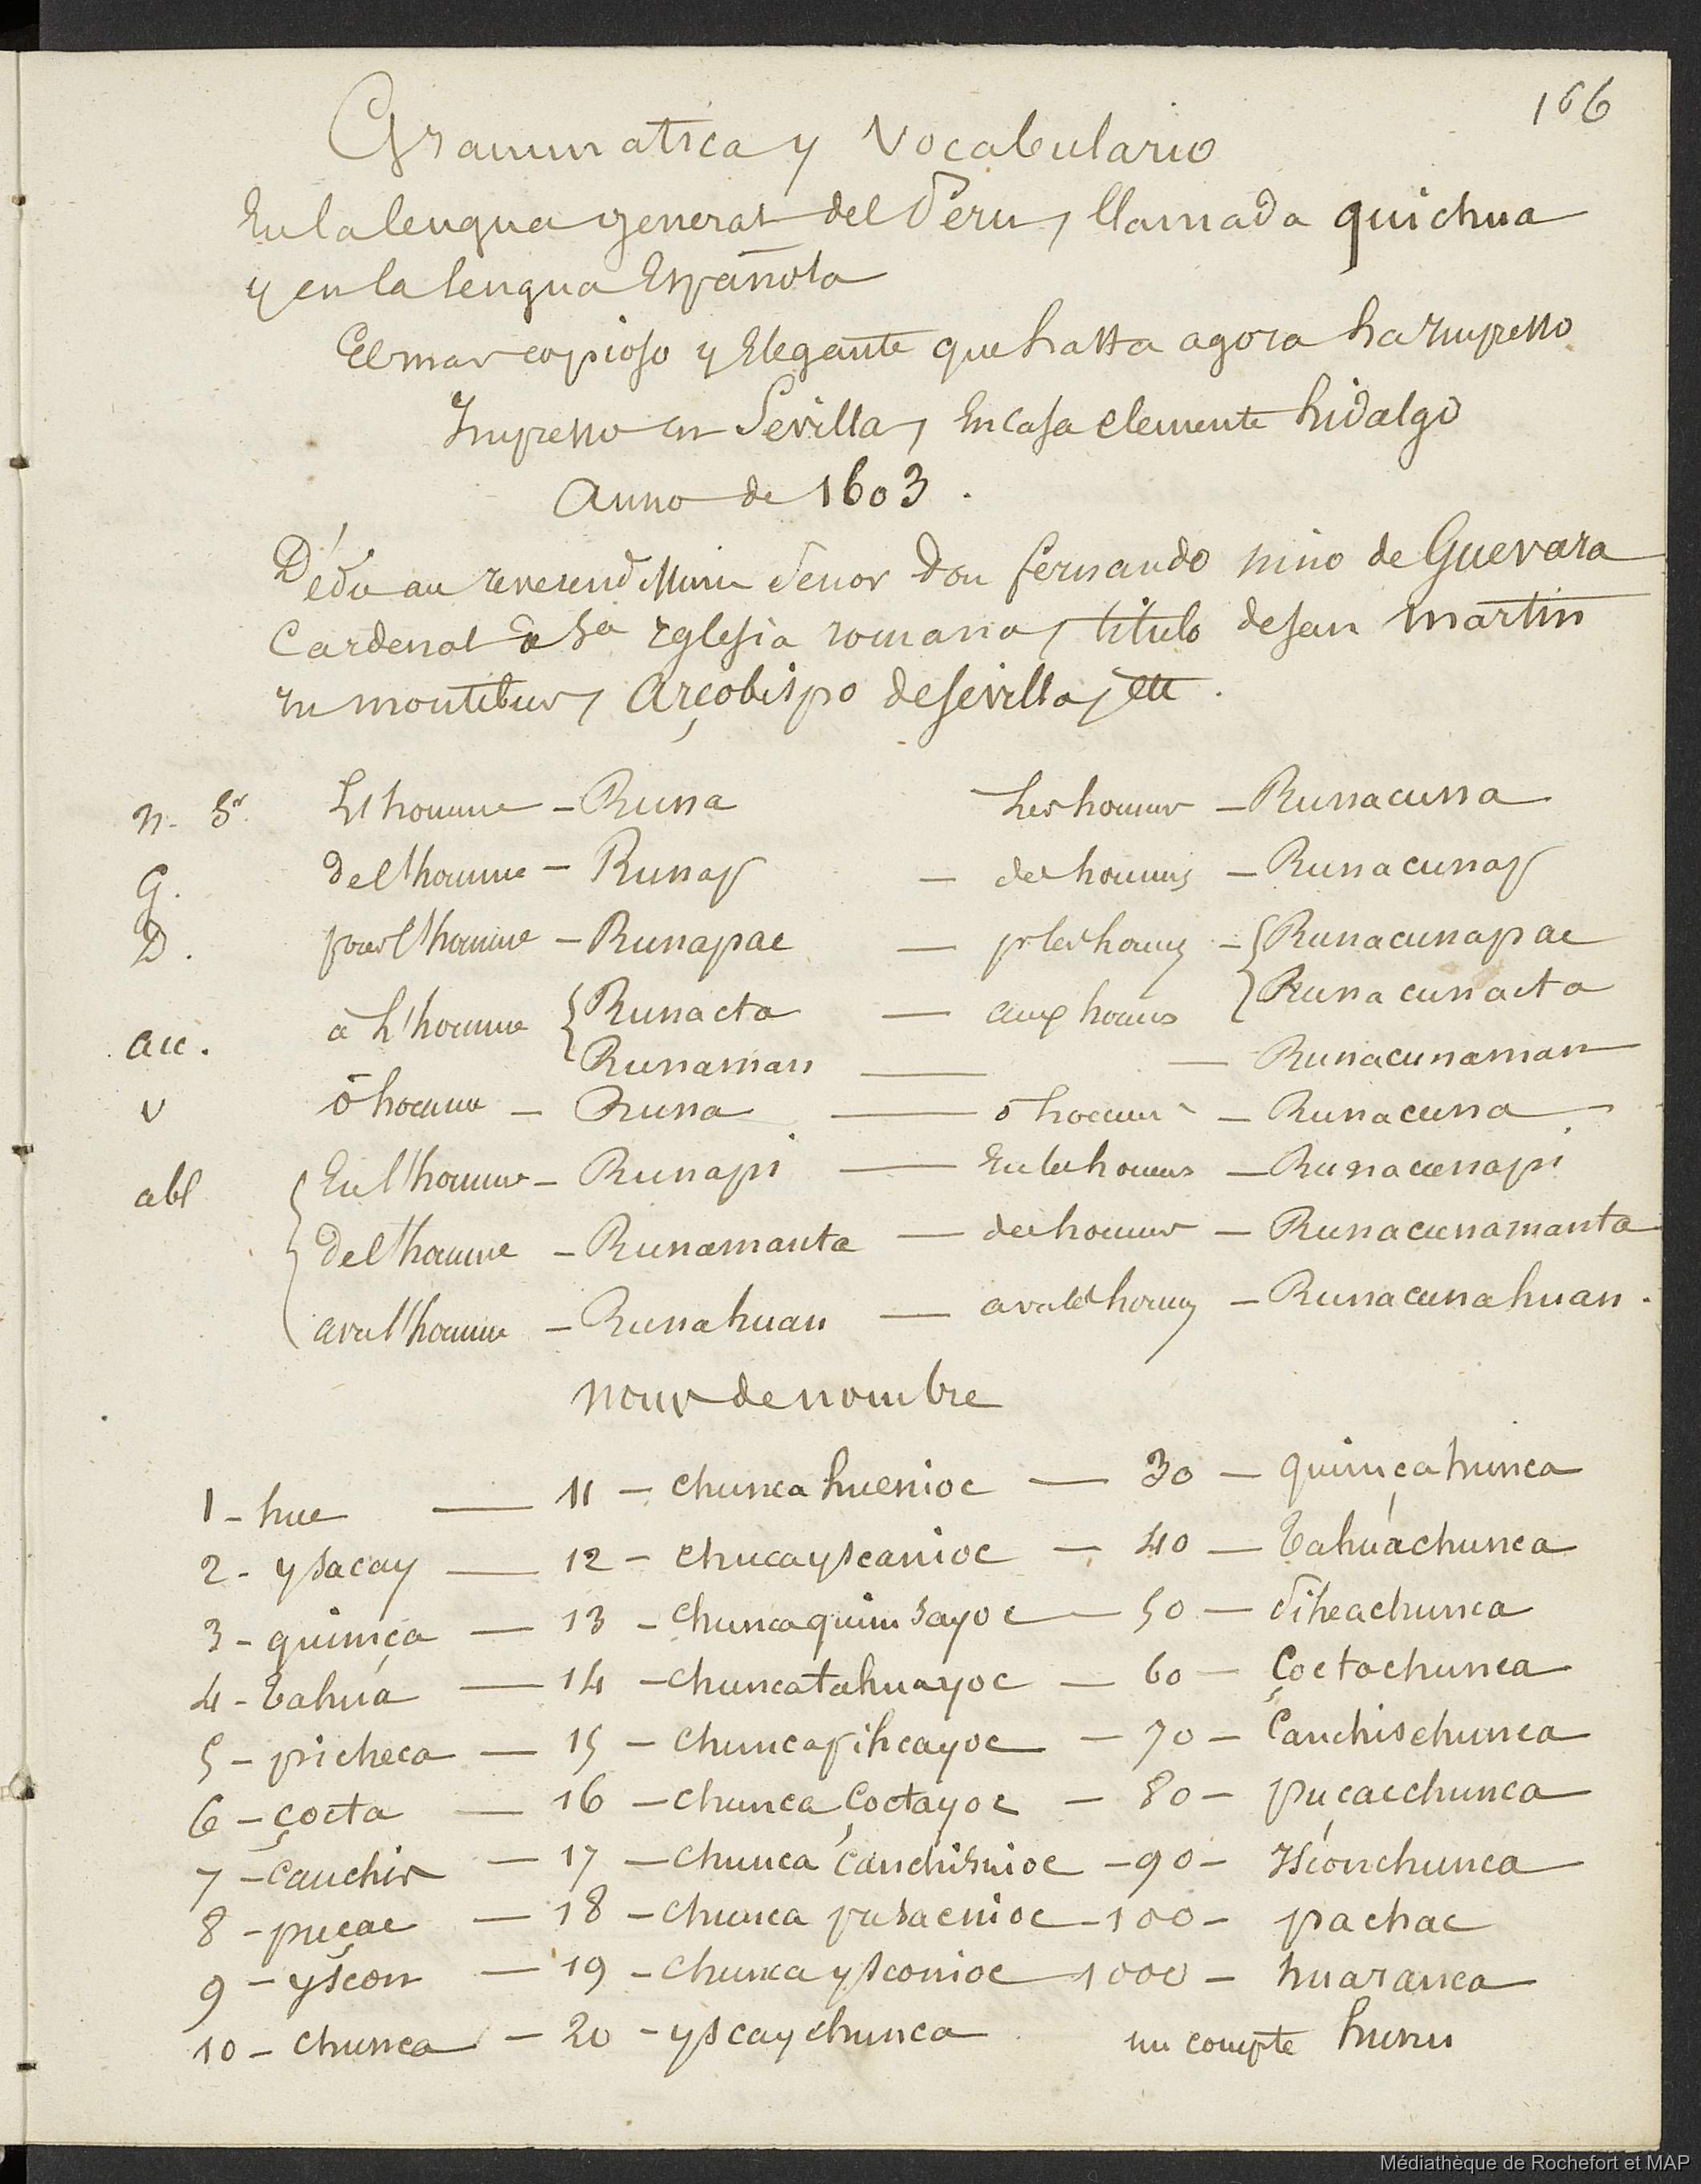 166
Grammatica y Vocabulario
En la lengua general del Peru, llamada quichua
y en la lengua Española
El mas copioso y Elegante que hasta agora ha Impresso
Impresso en Sevilla, En casa clemente hidalgo
Anno de 1603.
Dédié au reverendissim Senor Don fernando nino de Guevara
Cardenal Sa Yglesia romana, titulo de san martin
In montibus, Arçobispo de sevilla, etc.
n. Sr. L'homme - Runa les hommes - Runacuna
G. de l'homme - Runap - des hommes - Runacunap
D. pour l'homme - Runapac - pr les hommes - { Runacunapac
acc. à L'homme { Runacta - aux hommes { Runacunacta
Runaman - Runacunaman
V ô homme - Runa - ô hommes - Runacuna
abl { En l'homme - Runapi - En les hommes - Runacunapi
de l'homme - Runamanta - des hommes - Runacunamanta
avec l'homme - Runahuan - avec les hommes - Runacunahuan.
noms de nombre
1 - huc - 11 - chunca hucnioc - 30 - quimçahunca
2 - ysacay - 12 - chucayscanioc - 40 - Tahuáchunca
3 - quimça - 13 - chuncaquimsayoc - 50 - Pihcachunca
4 - Tahuá - 14 - chuncatahuayoc - 60 - çoctochunca
5 - picheca - 15 - chuncapihcayoc - 70 - Canchischunca
6 - çocta - 16 - chunca çoctayoc - 80 - puçacchunca
7 - Canchis - 17 - chunca Canchisnioc - 90 - Isconchunca
8 - puçac - 18 - chunca pusacnioc - 100 - pachac
9 - yscon - 19 - chunca ysconioc - 1000 - huaranca
10 - chunca - 20 - yscaychunca un compte hunu
Médiathèque de Rochefort et MAP